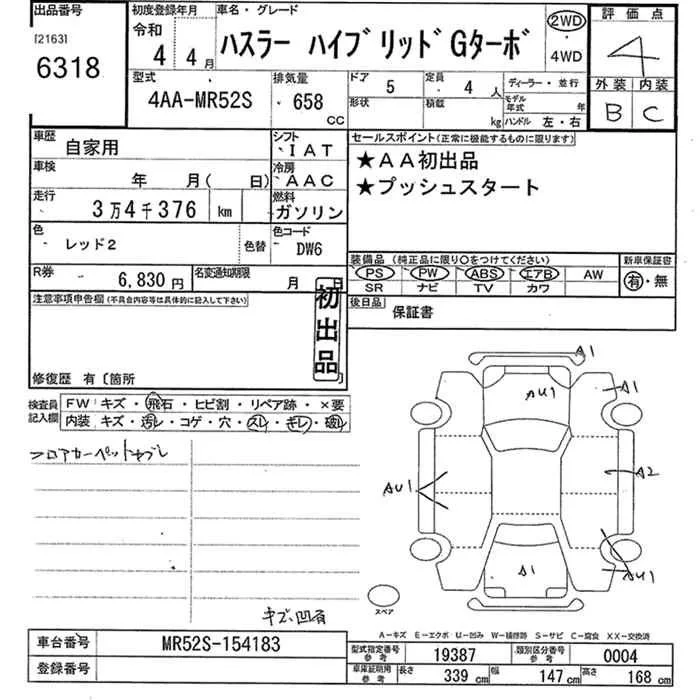 出品番号 初度登録年月 車名・グレード 評価点
[2163] 令和 ハスラー ハイブリッドGターボ 2WD・4WD 4
6318 4年 4月
型式 排気量 ドア 5 定員 4人 ディーラー・並行 外装 内装
4AA-MR52S 658cc 形状 積載 kg モデル年式 年 ハンドル 左・右 B C
車歴 自家用 シフト IAT セールスポイント(正常に機能するものに限ります)
車検 年 月(日) 冷房 AAC ★AA初出品
走行 3万4千376 km 燃料 ガソリン ★プッシュスタート
色 レッド2 色替 色コード DW6
装備品(純正品に限り○をつけてください) 新車保証書
R券 6,830円 名変通知期限 月 日 PS PW ABS エアB AW 有・無
SR ナビ TV カワ
注意事項申告欄(不具合内容等は具体的に記入して下さい) 初出品 後日品 保証書
修復歴 有〔箇所
検査員記入欄 FW キズ・飛石・ヒビ割・リペア跡・×要
内装 キズ・汚レ・コゲ・穴・スレ・キレ・破レ
フロアカーペットヤブレ
A1
AU1
A1
AU1
A2
A1
AU1
スペア
キズ、凹有
A-キズ E-エクボ U-凹み W-補修跡 S-サビ C-腐食 XX-交換済
車台番号 MR52S-154183 型式指定番号 参考 19387 類別区分番号 参考 0004
登録番号 車庫証明用 参考 長さ 339cm 幅 147cm 高さ 168cm